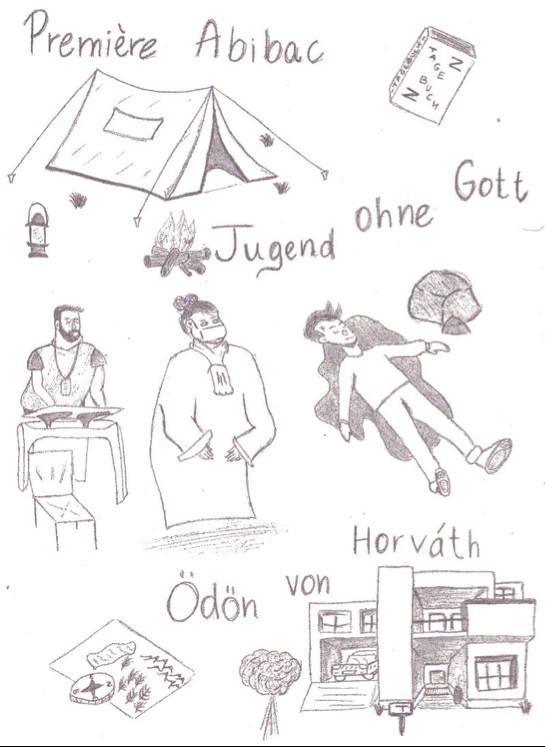 Première Abibac
TAGEBUCH
Z
TAGE
BUCH
N
Gott
ohne
Jugend
Horváth
von
Ödön